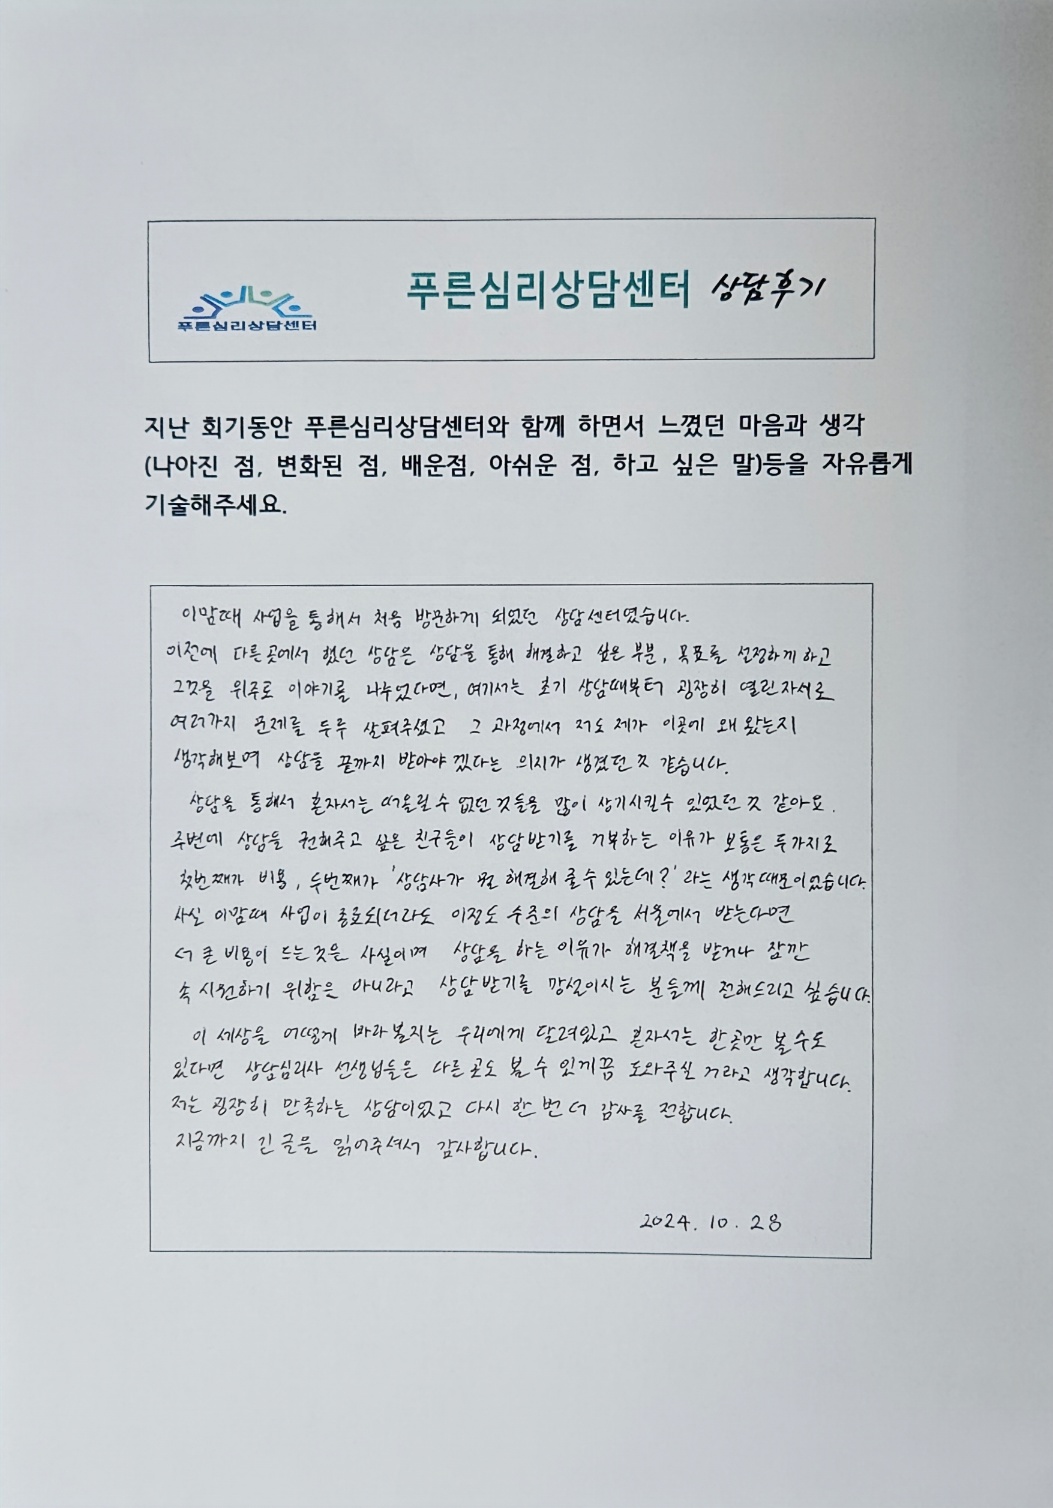 푸른심리상담센터
푸른심리상담센터 상담후기
지난 회기동안 푸른심리상담센터와 함께 하면서 느꼈던 마음과 생각
(나아진 점, 변화된 점, 배운점, 아쉬운 점, 하고 싶은 말)등을 자유롭게
기술해주세요.
이맘때 사업을 통해서 처음 방문하게 되었던 상담센터였습니다.
이전에 다른곳에서 했던 상담은 상담을 통해 해결하고 싶은 부분, 목표를 설정하게 하고
그것을 위주로 이야기를 나누었다면, 여기서는 초기 상담때부터 굉장히 열린자세로
여러가지 문제를 두루 살펴주셨고 그 과정에서 저도 제가 이곳에 왜 왔는지
생각해보며 상담을 끝까지 받아야 겠다는 의지가 생겼던것 같습니다.
상담을 통해서 혼자서는 떠올릴수 없던 것들을 많이 상기시킬수 있었던 것 같아요.
주변에 상담을 권해주고 싶은 친구들이 상담받기를 거부하는 이유가 보통은 두가지로
첫번째가 비용, 두번째가 '상담사가 뭘 해결해 줄수 있는데?' 라는 생각때문이었습니다.
사실 이맘때 사업이 종료되더라도 이정도 수준의 상담을 서울에서 받는다면
더 큰 비용이 드는것은 사실이며 상담을 하는 이유가 해결책을 받거나 잠깐
속 시원하기 위함은 아니라고 상담받기를 망설이시는 분들께 전해드리고 싶습니다.
이 세상을 어떻게 바라볼지는 우리에게 달려있고 혼자서는 한곳만 볼수도
있다면 상담심리사 선생님들은 다른곳도 볼 수 있게끔 도와주실 거라고 생각합니다.
저는 굉장히 만족하는 상담이었고 다시 한 번 더 감사를 전합니다.
지금까지 긴 글을 읽어주셔서 감사합니다.
2024. 10. 28